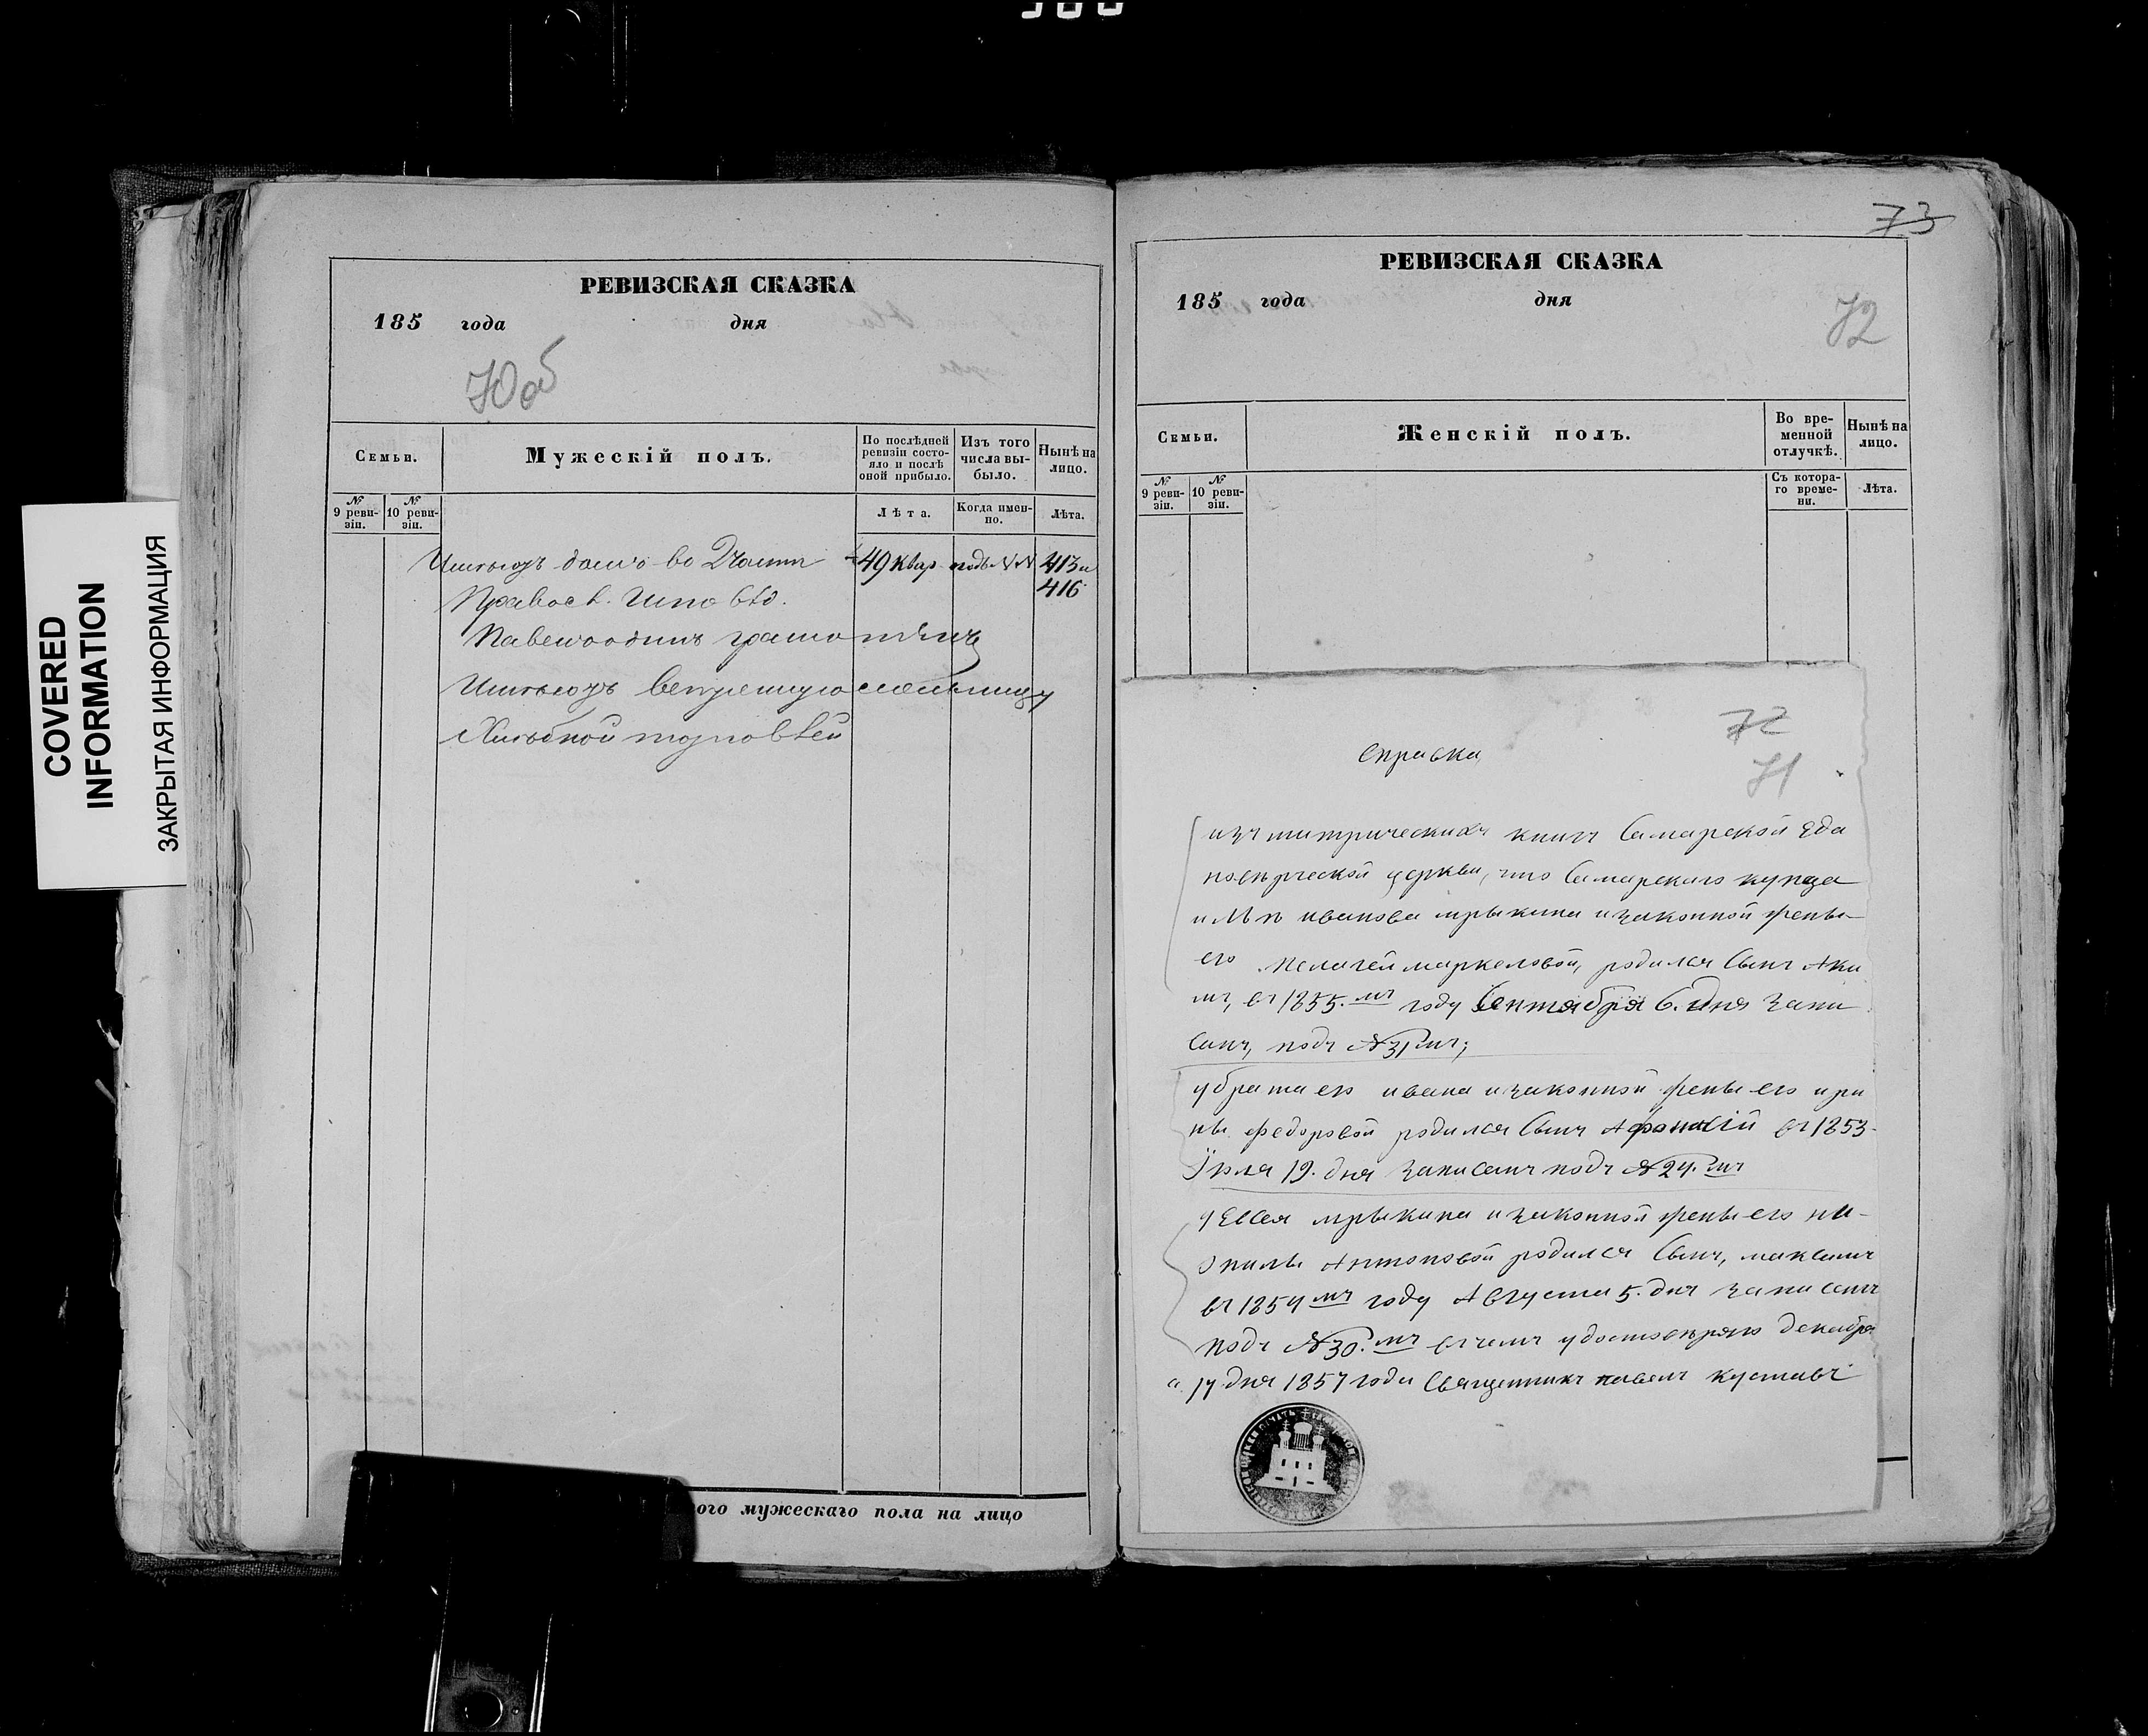 COVERED
INFORMATION
ЗАКРЫТАЯ ИНФОРМАЦИЯ
РЕВИЗСКАЯ СКАЗКА
185 года дня
70об
Семьи.
Мужескій полъ.
По послѣдней ревизіи состояло и послѣ оной прибыло.
Изъ того числа выбыло.
Нынѣ на лицо.
№ 9 ревизіи.
№ 10 ревизіи.
Лѣта.
Когда именно.
Лѣта.
Имѣютъ домъ во 2 части 49 квар. подъ №№ 413 и
416
Правосл. Исповѣд.
Имѣютъ ветренную мельницу
Хлѣбной торговлей
ого мужескаго пола на лицо
73
РЕВИЗСКАЯ СКАЗКА
185 года дня
72
Семьи.
Женскій полъ.
Во временной отлучкѣ.
Нынѣ на лицо.
№ 9 ревизіи.
№ 10 ревизіи.
Съ котораго времени.
Лѣта.
72
71
Справка
изъ митрическихъ книгъ Самарской Еди
новѣрческой церкви, что Самарскаго купца
иванова мрыкина и законной жены
его пелагеи маркеловой, родился Сынъ Аки
мъ, въ 1855.мъ году Сентября 6. дня запи
санъ, подъ №31мъ;
у брата его ивана и законной жены его ири
ны федоровой родился Сынъ Афонасій въ 1853
Июля 19. дня записанъ подъ №24.мъ
у Евсея мрыкина и законной жены его
Антоновой родился Сынъ, максимъ
въ 1854мъ году Августа 5. дня записанъ
подъ №30.мъ въ чемъ удостовѣряю декабря
17 дня 1857 года Священникъ павелъ